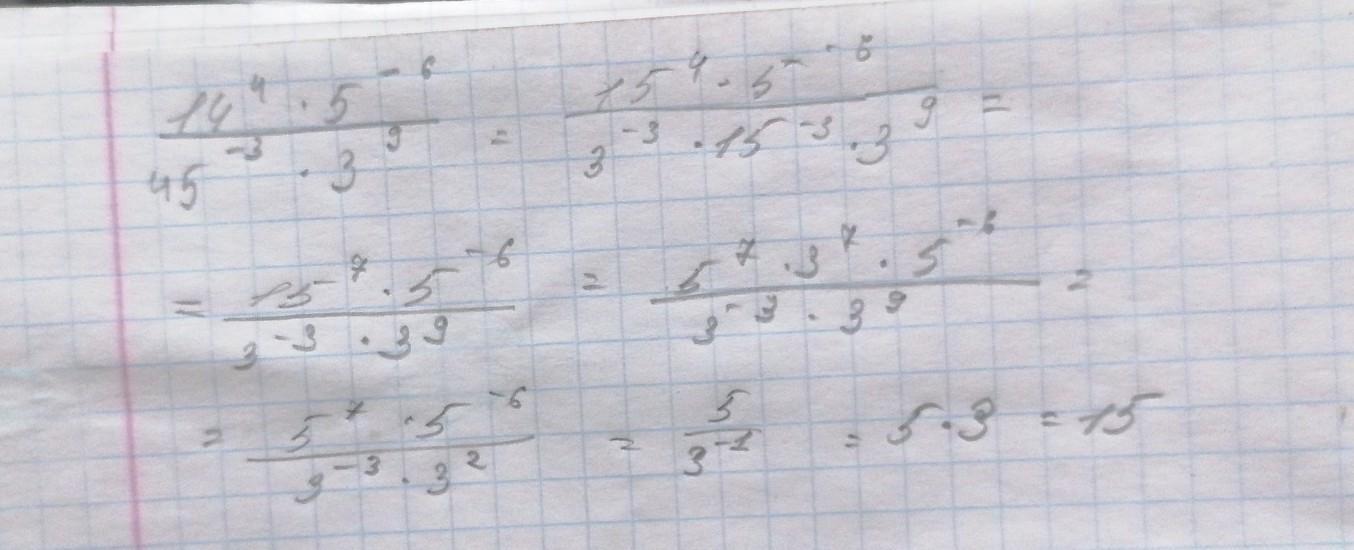 14⁴ · 5⁻⁶ / 45⁻³ · 3⁹ = 15⁴ · 5⁻⁶ / 3⁻³ · 15⁻³ · 3⁹ =
= 15⁷ · 5⁻⁶ / 3⁻³ · 3⁹ = 5⁷ · 3⁷ · 5⁻⁶ / 3⁻³ · 3⁹ =
= 5⁷ · 5⁻⁶ / 3⁻³ · 3² = 5 / 3⁻¹ = 5 · 3 = 15